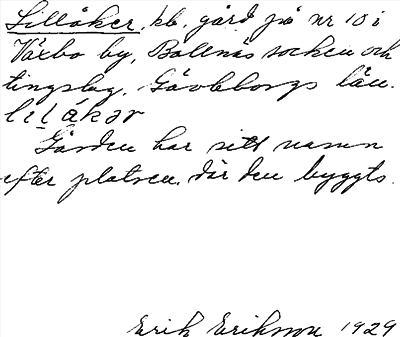 Lillåker, kb. gård på nr 10 i
Växbo by, Bollnäs socken och
tingslag. Gävleborgs län.
lilåkər
Gården har sitt namn
efter platsen, där den byggts.
Erik Eriksson 1929